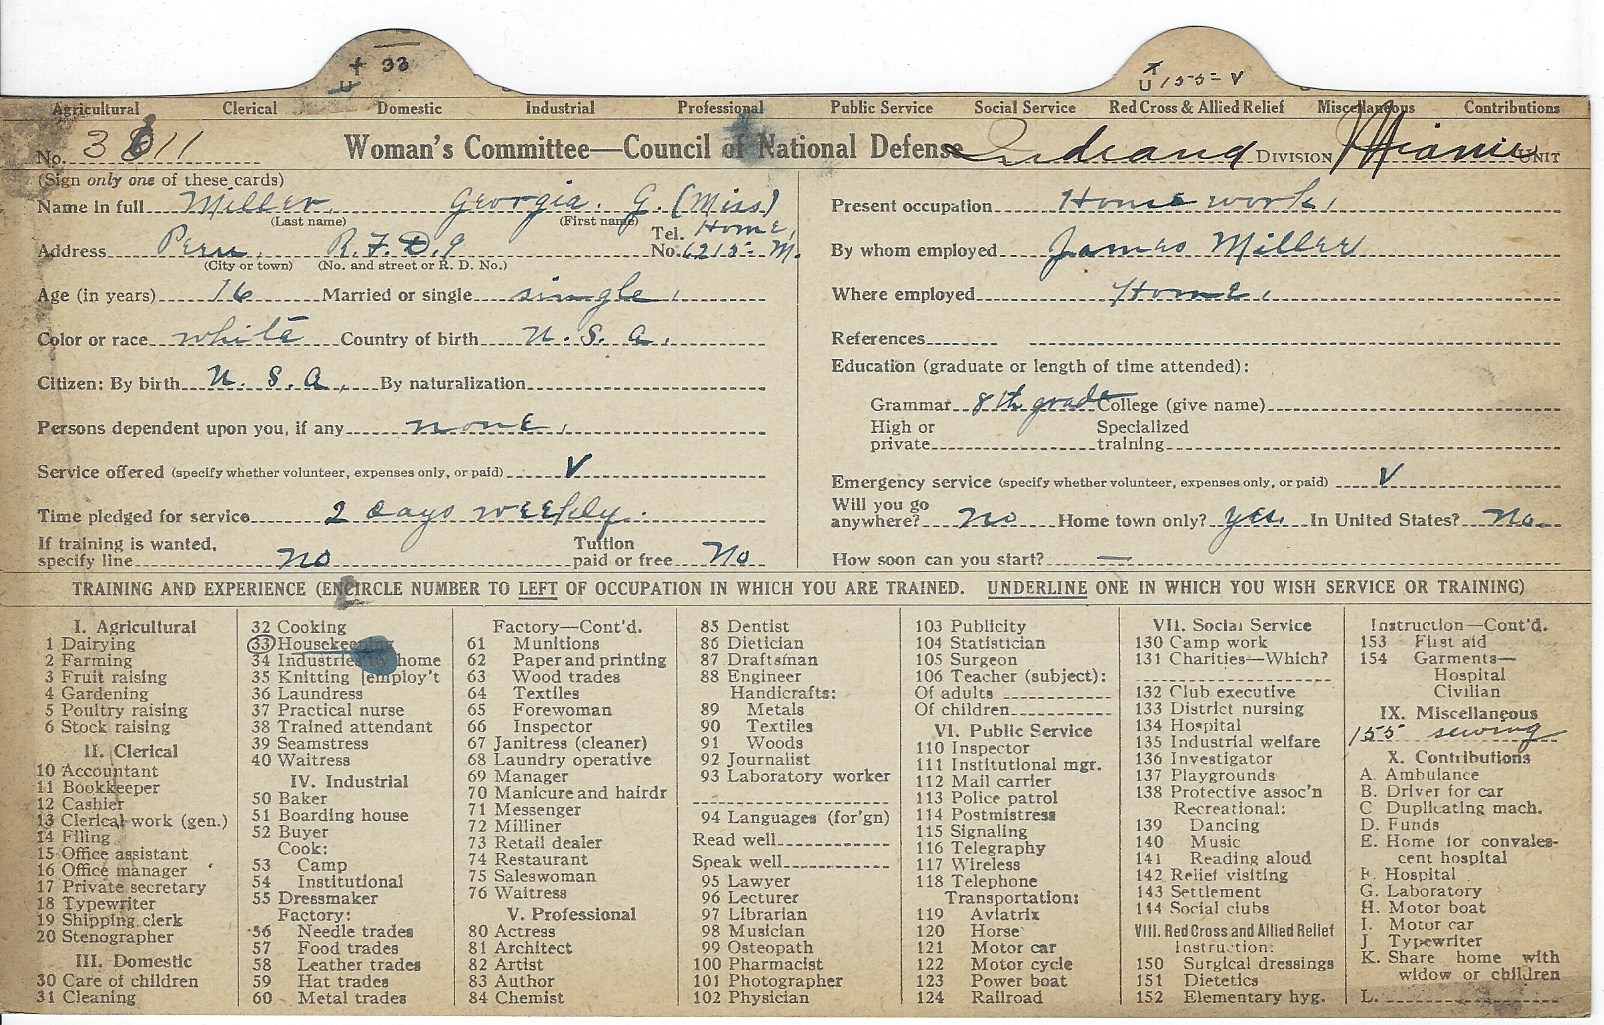 33
155- V
Agricultural Clerical Domestic Industrial Professional Public Service Social Service Red Cross & Allied Relief Miscellaneous Contributions
No. 3611 Woman's Committee—Council of National Defense Indiana DIVISION Miami UNIT
(Sign only one of these cards)
Name in full Miller, Georgia. G. (Miss)
(Last name) (First name)
Address Peru, R.F.D. 9 Tel. No. Home, 6215- M.
(City or town) (No. and street or R. D. No.)
Age (in years) 16 Married or single single,
Color or race white Country of birth U. S. A.
Citizen: By birth U. S. A. By naturalization
Persons dependent upon you, if any none,
Service offered (specify whether volunteer, expenses only, or paid) V
Time pledged for service 2 days weekly.
If training is wanted, specify line no Tuition paid or free No
Present occupation House work,
By whom employed James Miller
Where employed Home,
References
Education (graduate or length of time attended):
Grammar 8th grade College (give name)
High or private Specialized training
Emergency service (specify whether volunteer, expenses only, or paid) V
Will you go anywhere? no Home town only? yes. In United States? No.
How soon can you start? —
TRAINING AND EXPERIENCE (ENCIRCLE NUMBER TO LEFT OF OCCUPATION IN WHICH YOU ARE TRAINED. UNDERLINE ONE IN WHICH YOU WISH SERVICE OR TRAINING)
I. Agricultural
1 Dairying
2 Farming
3 Fruit raising
4 Gardening
5 Poultry raising
6 Stock raising
II. Clerical
10 Accountant
11 Bookkeeper
12 Cashier
13 Clerical work (gen.)
14 Filing
15 Office assistant
16 Office manager
17 Private secretary
18 Typewriter
19 Shipping clerk
20 Stenographer
III. Domestic
30 Care of children
31 Cleaning
32 Cooking
33 Housekeeping
34 Industries by home
35 Knitting [employ't
36 Laundress
37 Practical nurse
38 Trained attendant
39 Seamstress
40 Waitress
IV. Industrial
50 Baker
51 Boarding house
52 Buyer
Cook:
53 Camp
54 Institutional
55 Dressmaker
Factory:
56 Needle trades
57 Food trades
58 Leather trades
59 Hat trades
60 Metal trades
Factory—Cont'd.
61 Munitions
62 Paper and printing
63 Wood trades
64 Textiles
65 Forewoman
66 Inspector
67 Janitress (cleaner)
68 Laundry operative
69 Manager
70 Manicure and hairdr
71 Messenger
72 Milliner
73 Retail dealer
74 Restaurant
75 Saleswoman
76 Waitress
V. Professional
80 Actress
81 Architect
82 Artist
83 Author
84 Chemist
85 Dentist
86 Dietician
87 Draftsman
88 Engineer
Handicrafts:
89 Metals
90 Textiles
91 Woods
92 Journalist
93 Laboratory worker
94 Languages (for'gn)
Read well
Speak well
95 Lawyer
96 Lecturer
97 Librarian
98 Musician
99 Osteopath
100 Pharmacist
101 Photographer
102 Physician
103 Publicity
104 Statistician
105 Surgeon
106 Teacher (subject):
Of adults
Of children
VI. Public Service
110 Inspector
111 Institutional mgr.
112 Mail carrier
113 Police patrol
114 Postmistress
115 Signaling
116 Telegraphy
117 Wireless
118 Telephone
Transportation:
119 Aviatrix
120 Horse
121 Motor car
122 Motor cycle
123 Power boat
124 Railroad
VII. Social Service
130 Camp work
131 Charities—Which?
132 Club executive
133 District nursing
134 Hospital
135 Industrial welfare
136 Investigator
137 Playgrounds
138 Protective assoc'n
Recreational:
139 Dancing
140 Music
141 Reading aloud
142 Relief visiting
143 Settlement
144 Social clubs
VIII. Red Cross and Allied Relief
Instruction:
150 Surgical dressings
151 Dietetics
152 Elementary hyg.
Instruction—Cont'd.
153 First aid
154 Garments—
Hospital
Civilian
IX. Miscellaneous
155 sewing
X. Contributions
A. Ambulance
B. Driver for car
C Duplicating mach.
D. Funds
E. Home for convales-
cent hospital
F. Hospital
G. Laboratory
H. Motor boat
I. Motor car
J Typewriter
K. Share home with
widow or children
L.